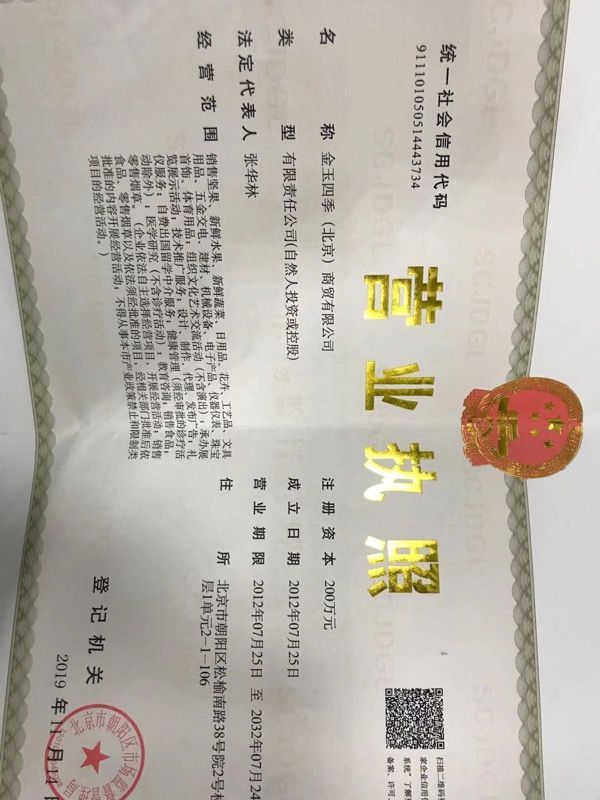 统一社会信用代码
91110105051443734
营业执照
扫描二维码
家企业信用
系统”了解
备案、许可、
名称 金玉四季（北京）商贸有限公司
类型 有限责任公司(自然人投资或控股)
法定代表人 张华林
经营范围 销售坚果、新鲜水果、新鲜蔬菜、日用品、花卉、工艺品、文具
用品、五金交电、建材、机械设备、电子产品、仪器仪表、珠宝
首饰、体育用品；组织文化艺术交流活动（不含演出）；承办展
览展示活动；技术推广服务；设计、制作、代理、发布广告；礼
仪服务；自费出国留学中介服务；健康管理（须经审批的诊疗活
动除外）；医学研究（不含诊疗活动）；教育咨询；销售食品；
零售烟草。（企业依法自主选择经营项目，开展经营活动；销售
食品、零售烟草以及依法须经批准的项目，经相关部门批准后依
批准的内容开展经营活动；不得从事本市产业政策禁止和限制类
项目的经营活动。）
注册资本 200万元
成立日期 2012年07月25日
营业期限 2012年07月25日 至 2032年07月24
住所 北京市朝阳区松榆南路38号院2号楼
层1单元2-1-106
登记机关
北京市朝阳区市场监督管理局
2019 年 11 月 14 日